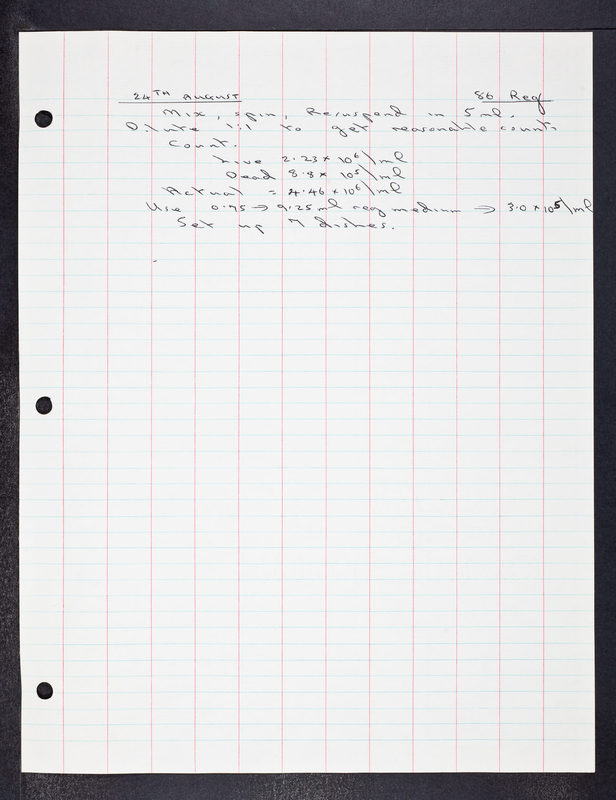 24TH AUGUST 86 Reg
Mix, spin, Resuspend in 5ml.
Dilute 1:1 to get reasonable counts
Count.
Live 2.23 x 10⁶/ml
Dead 8.8 x 10⁵/ml
Actual = 4.46 x 10⁶/ml
Use 0.75 → 9.25 ml reg medium → 3.0 x 10⁵/ml
Set up 7 dishes.